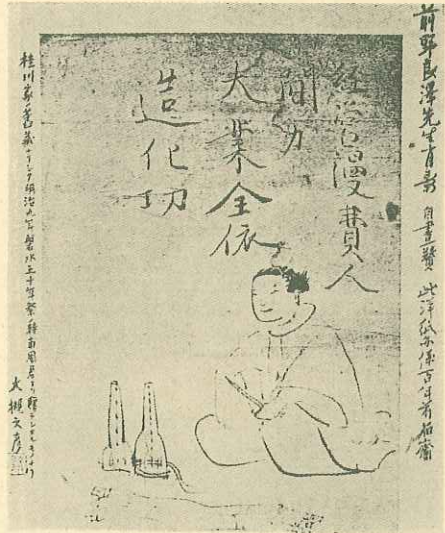 前野良澤先生肖影 自畫贊 此洋紙亦係百年前舶齎
経営漫費人
間力
大業全依
造化功
桂川家ノ舊藏ナリシヲ明治九年磐水五十年祭ノ時甫周君ヨリ贈ラレタルモノナリ
大槻文彦